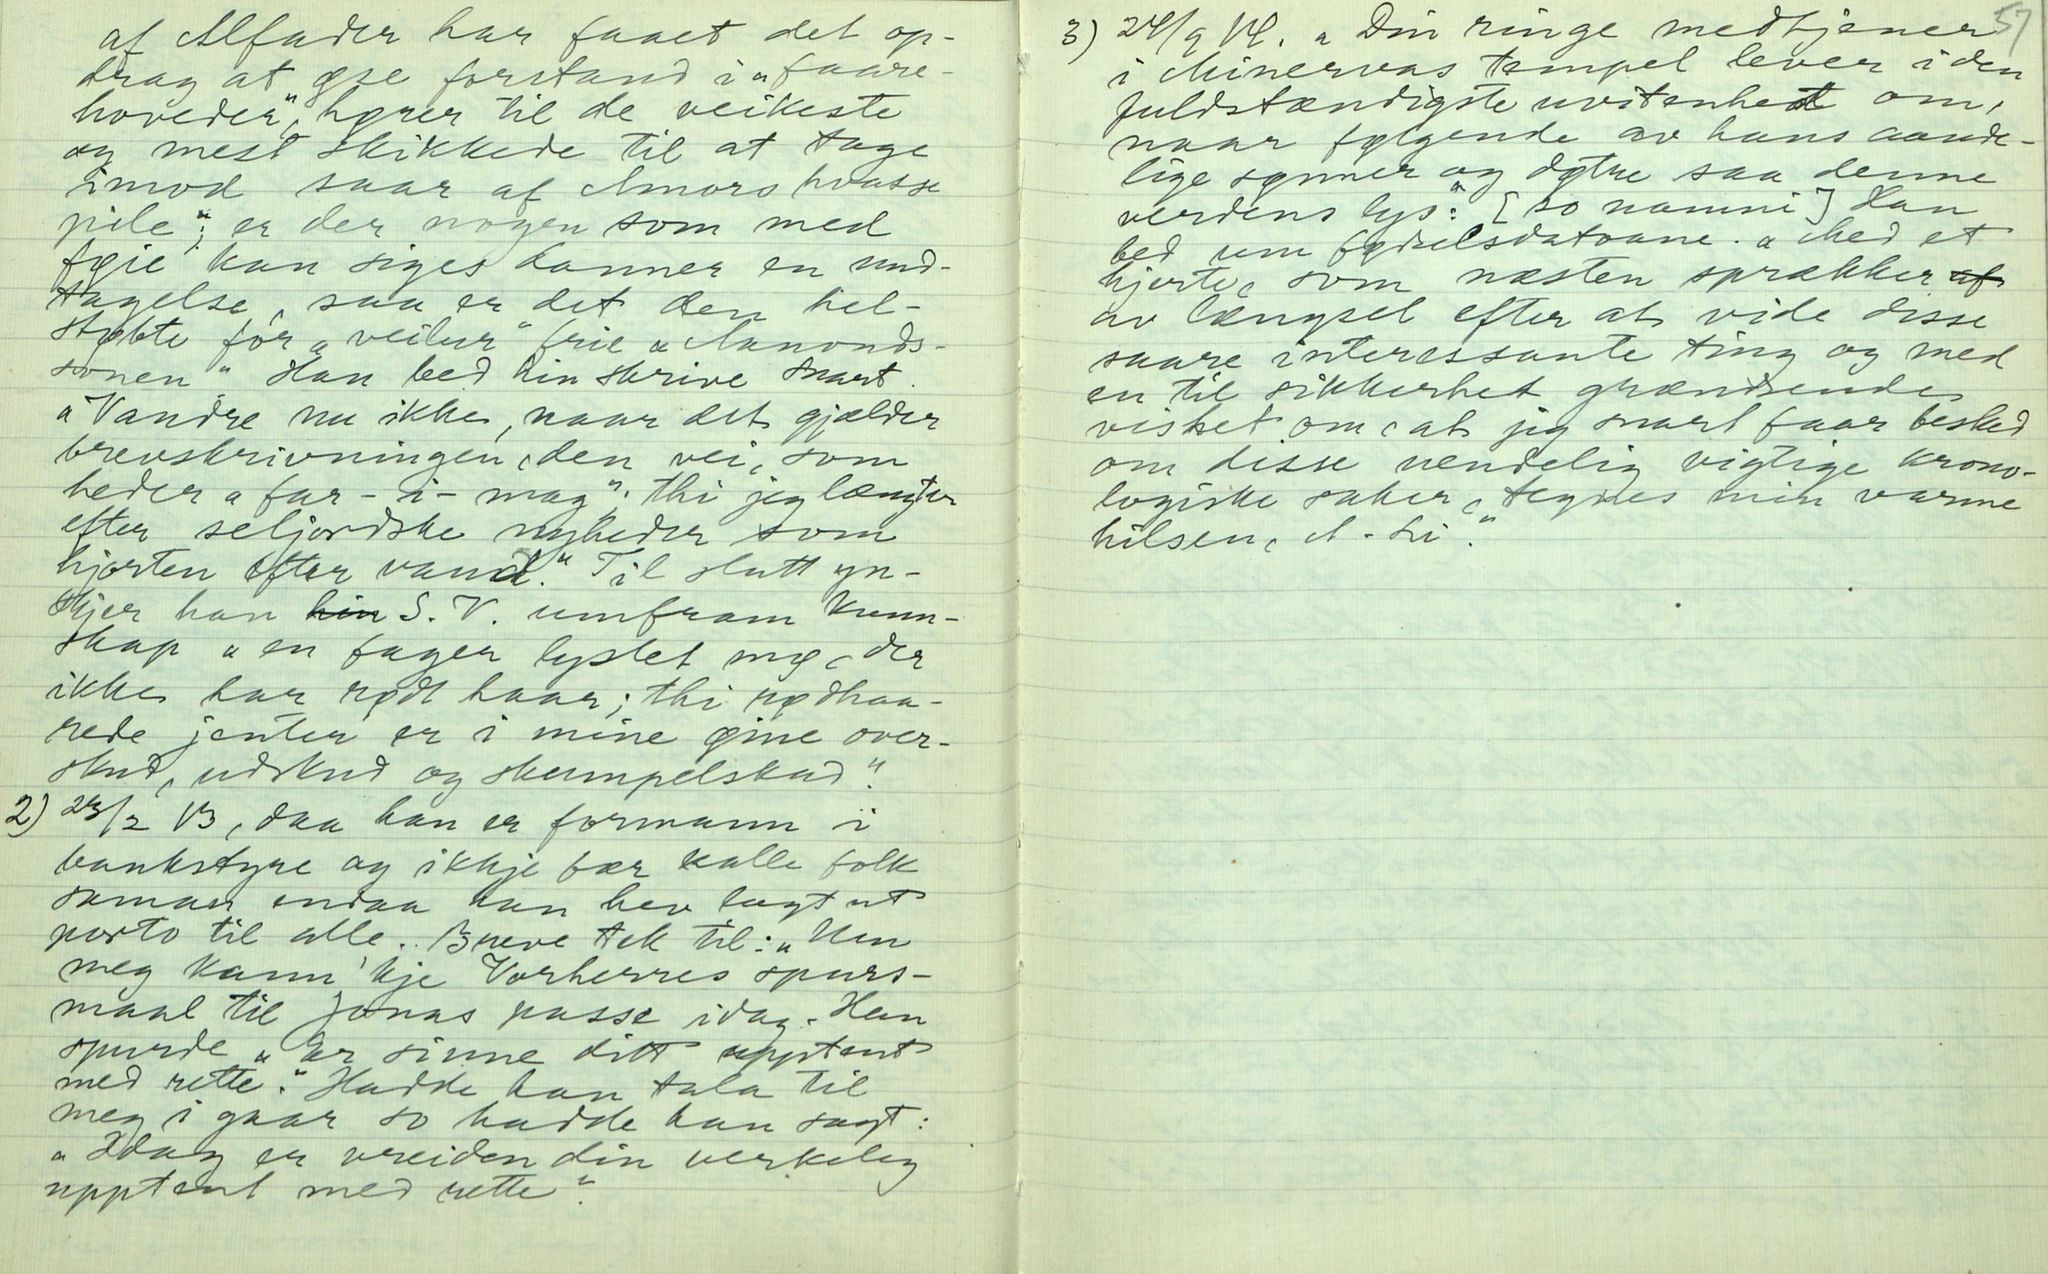 af Alfader har faaet det op-
drag at øse forstand i „faare-
hoveder", hører til de veikeste
og mest skikkede til at tage
imod saar af Amors hvasse
pile"; er der nogen som med
føie kan siges danner en und-
tagelse, saa er det den hel-
støbte for „veilur" frie „Aamonds-
sonen" Han bed hin skrive snart.
„Vandre nu ikke, naar det gjælder
brevskrivningen, den vei, som
heder „far-i-mag"; thi jeg længter
efter seljordske nyheder som
hjorten efter vand." Til slutt yn-
skjer han hin S. V. umfram kunn-
skap „en fager lyslet mø, der
ikke har rødt haar; thi rødhaa-
rede jenter er i mine øine over-
skud, udskud og skumpelskud".
2) 23/2 13, daa han er formann i
bankstyre og ikkje fær kalle folk
saman endaa han hev lagt ut
porto til alle. Breve tek til: „Um
meg kann 'kje Vorherres spurs-
maal til Jonas passe idag. Han
spurde „Er sinne ditt upptent
med rette." Hadde han tala til
meg i gaar so hadde han sagt:
„Idag er vreiden din verkeleg
upptent med rette".
57
3) 24/9 14. „Din ringe medtjener
i Minervas tempel lever i den
fuldstændigste uvitenhet om,
naar følgende av hans aande-
lige sønner og døtre saa denne
verdens lys:" [so namni] Han
bed um fødselsdatoane. „Med et
hjerte, som næsten sprækker af
av længsel efter at vide disse
saare interessante ting og med
en til sikkerhet grændsende
vishet om, at jeg snart faar besked
om disse uendelig vigtige krono-
logiske saker, tegnes min varme
hilsen, A-Li".